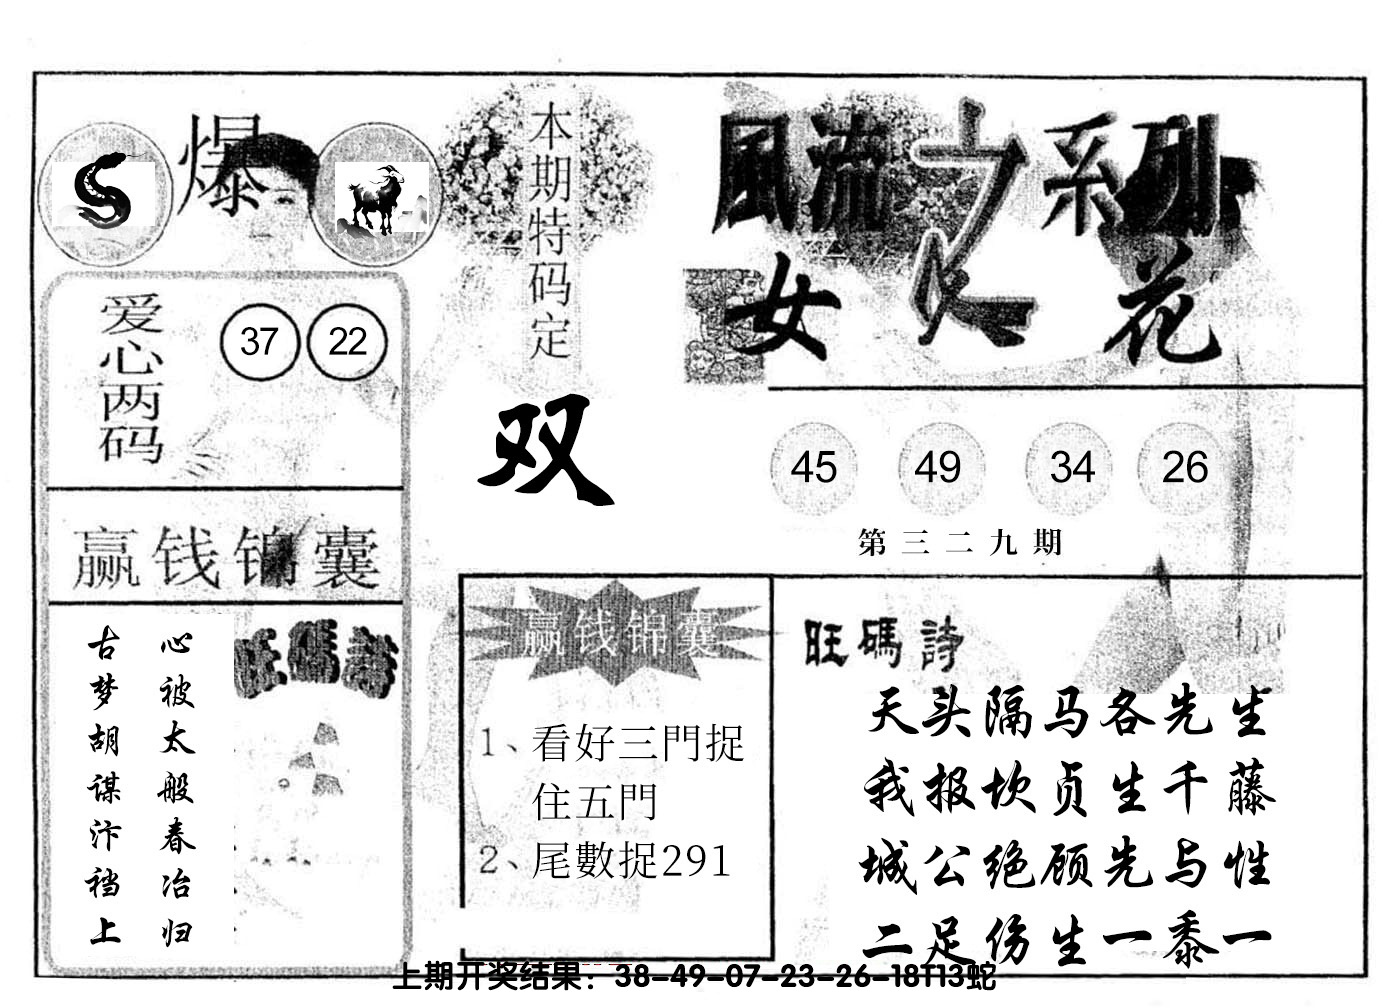 爆
爱心两码
37 22
赢钱锦囊
心被太般春冶归
古梦胡谋汴裆上
旺碼詩
本期特码定
双
赢钱锦囊
1、看好三門捉
住五門
2、尾數捉291
風流之系列
女人花
45 49 34 26
第三二九期
旺碼詩
天头隔马各先生
我报坎贞生千藤
城公绝顾先与性
二足伤生一黍一
上期开奖结果：38-49-07-23-26-18T13蛇